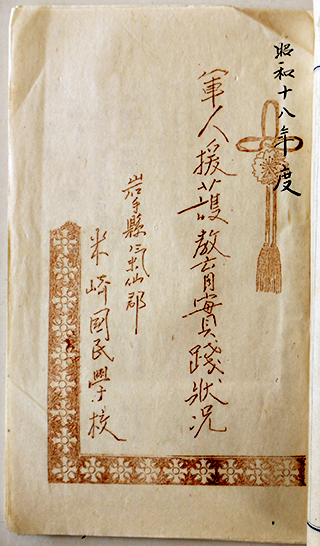 昭和十八年度
軍人援護教育實踐狀況
岩手縣氣仙郡
米崎國民學校